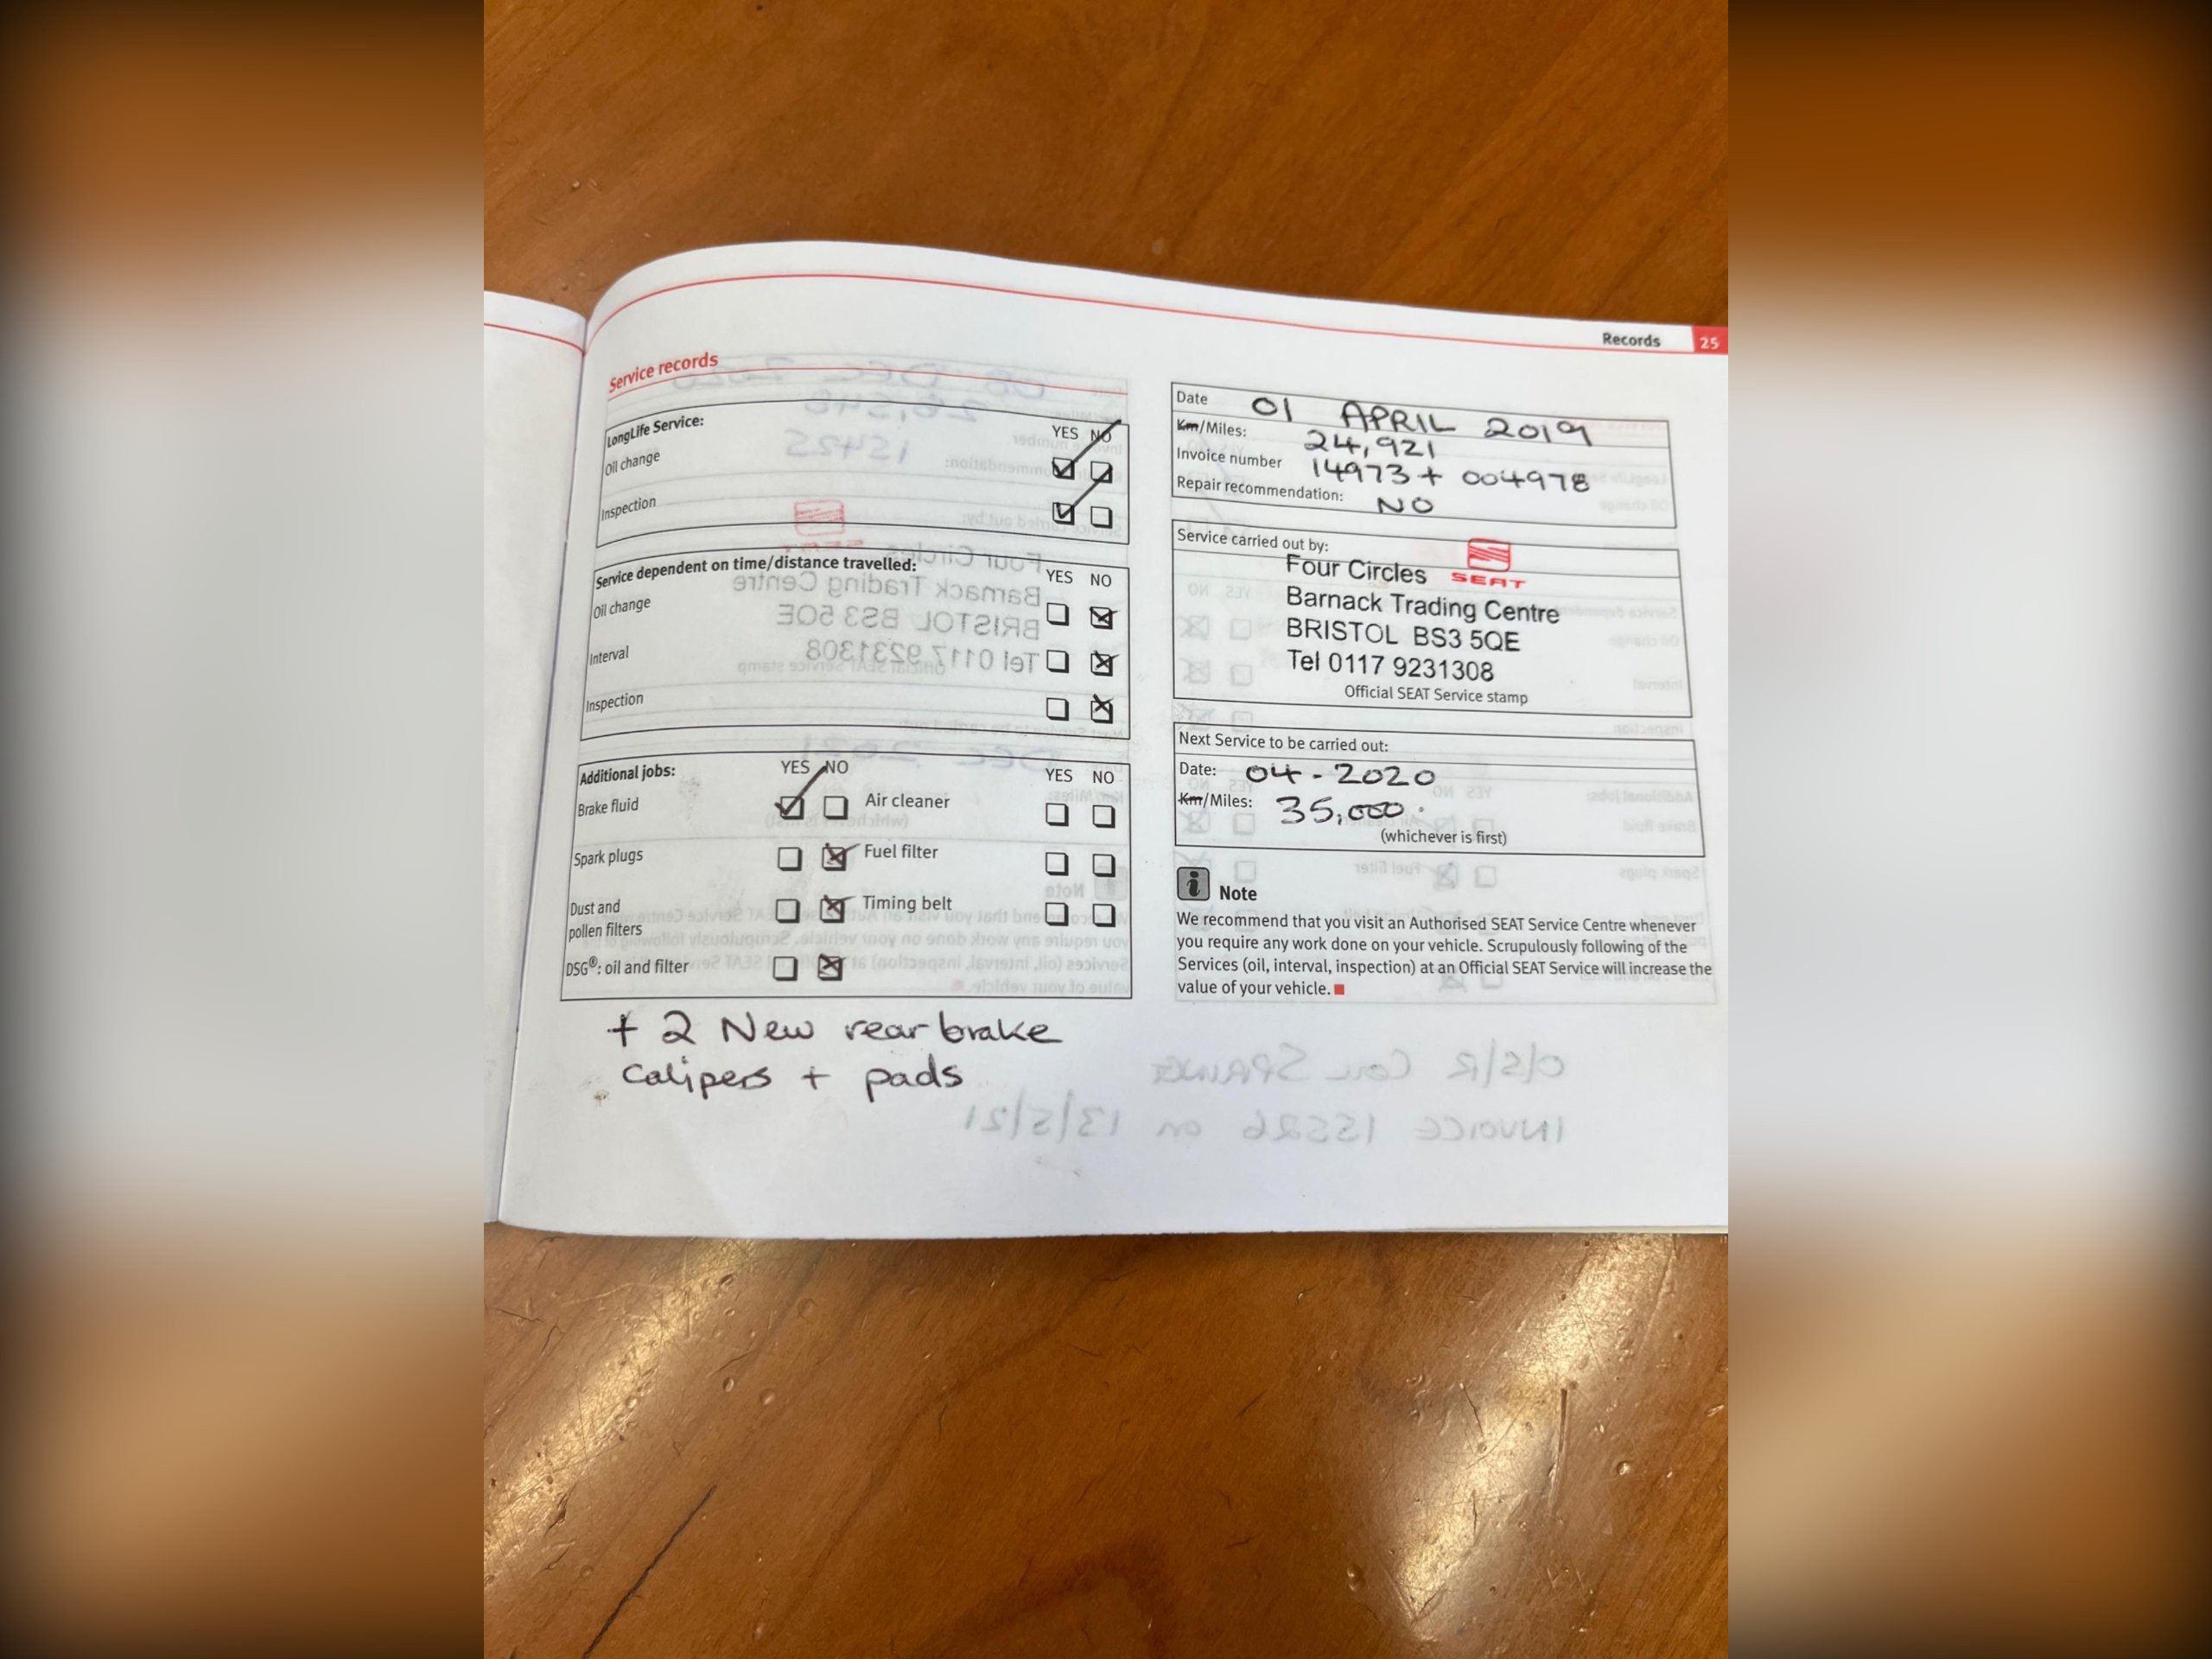 Records 25
Service records
LongLife Service:
YES NO
Oil change
Inspection
Service dependent on time/distance travelled:
YES NO
Oil change
Interval
Inspection
Additional jobs:
YES NO
YES NO
Brake fluid
Air cleaner
Spark plugs
Fuel filter
Dust and
pollen filters
Timing belt
DSG®: oil and filter
+ 2 New rear brake
calipers + pads
Date 01 APRIL 2019
Km/Miles: 24,921
Invoice number 14973 + 004978
Repair recommendation: NO
Service carried out by:
SEAT
Four Circles
Barnack Trading Centre
BRISTOL BS3 5QE
Tel 0117 9231308
Official SEAT Service stamp
Next Service to be carried out:
Date: 04-2020
Km/Miles: 35,000.
(whichever is first)
i Note
We recommend that you visit an Authorised SEAT Service Centre whenever
you require any work done on your vehicle. Scrupulously following of the
Services (oil, interval, inspection) at an Official SEAT Service will increase the
value of your vehicle.